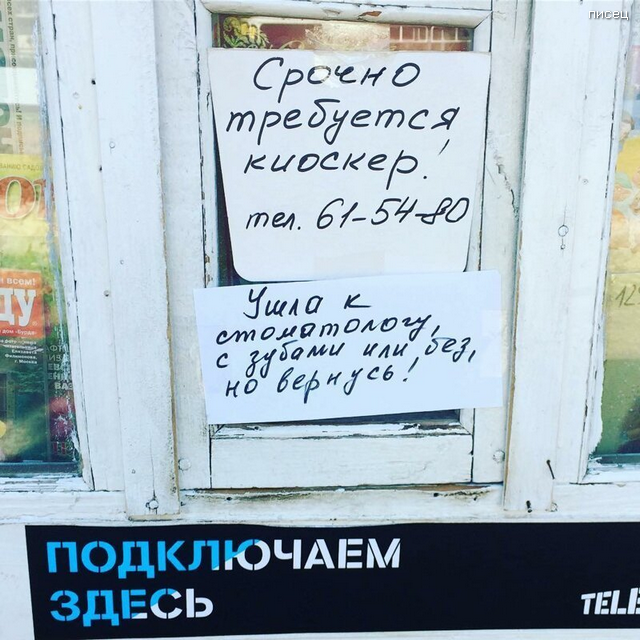 писец
Срочно
требуется
киоскер!
тел. 61-54-80
Ушла к
стоматологу,
с зубами или без,
но вернусь!
ПОДКЛЮЧАЕМ
ЗДЕСЬ
TELE